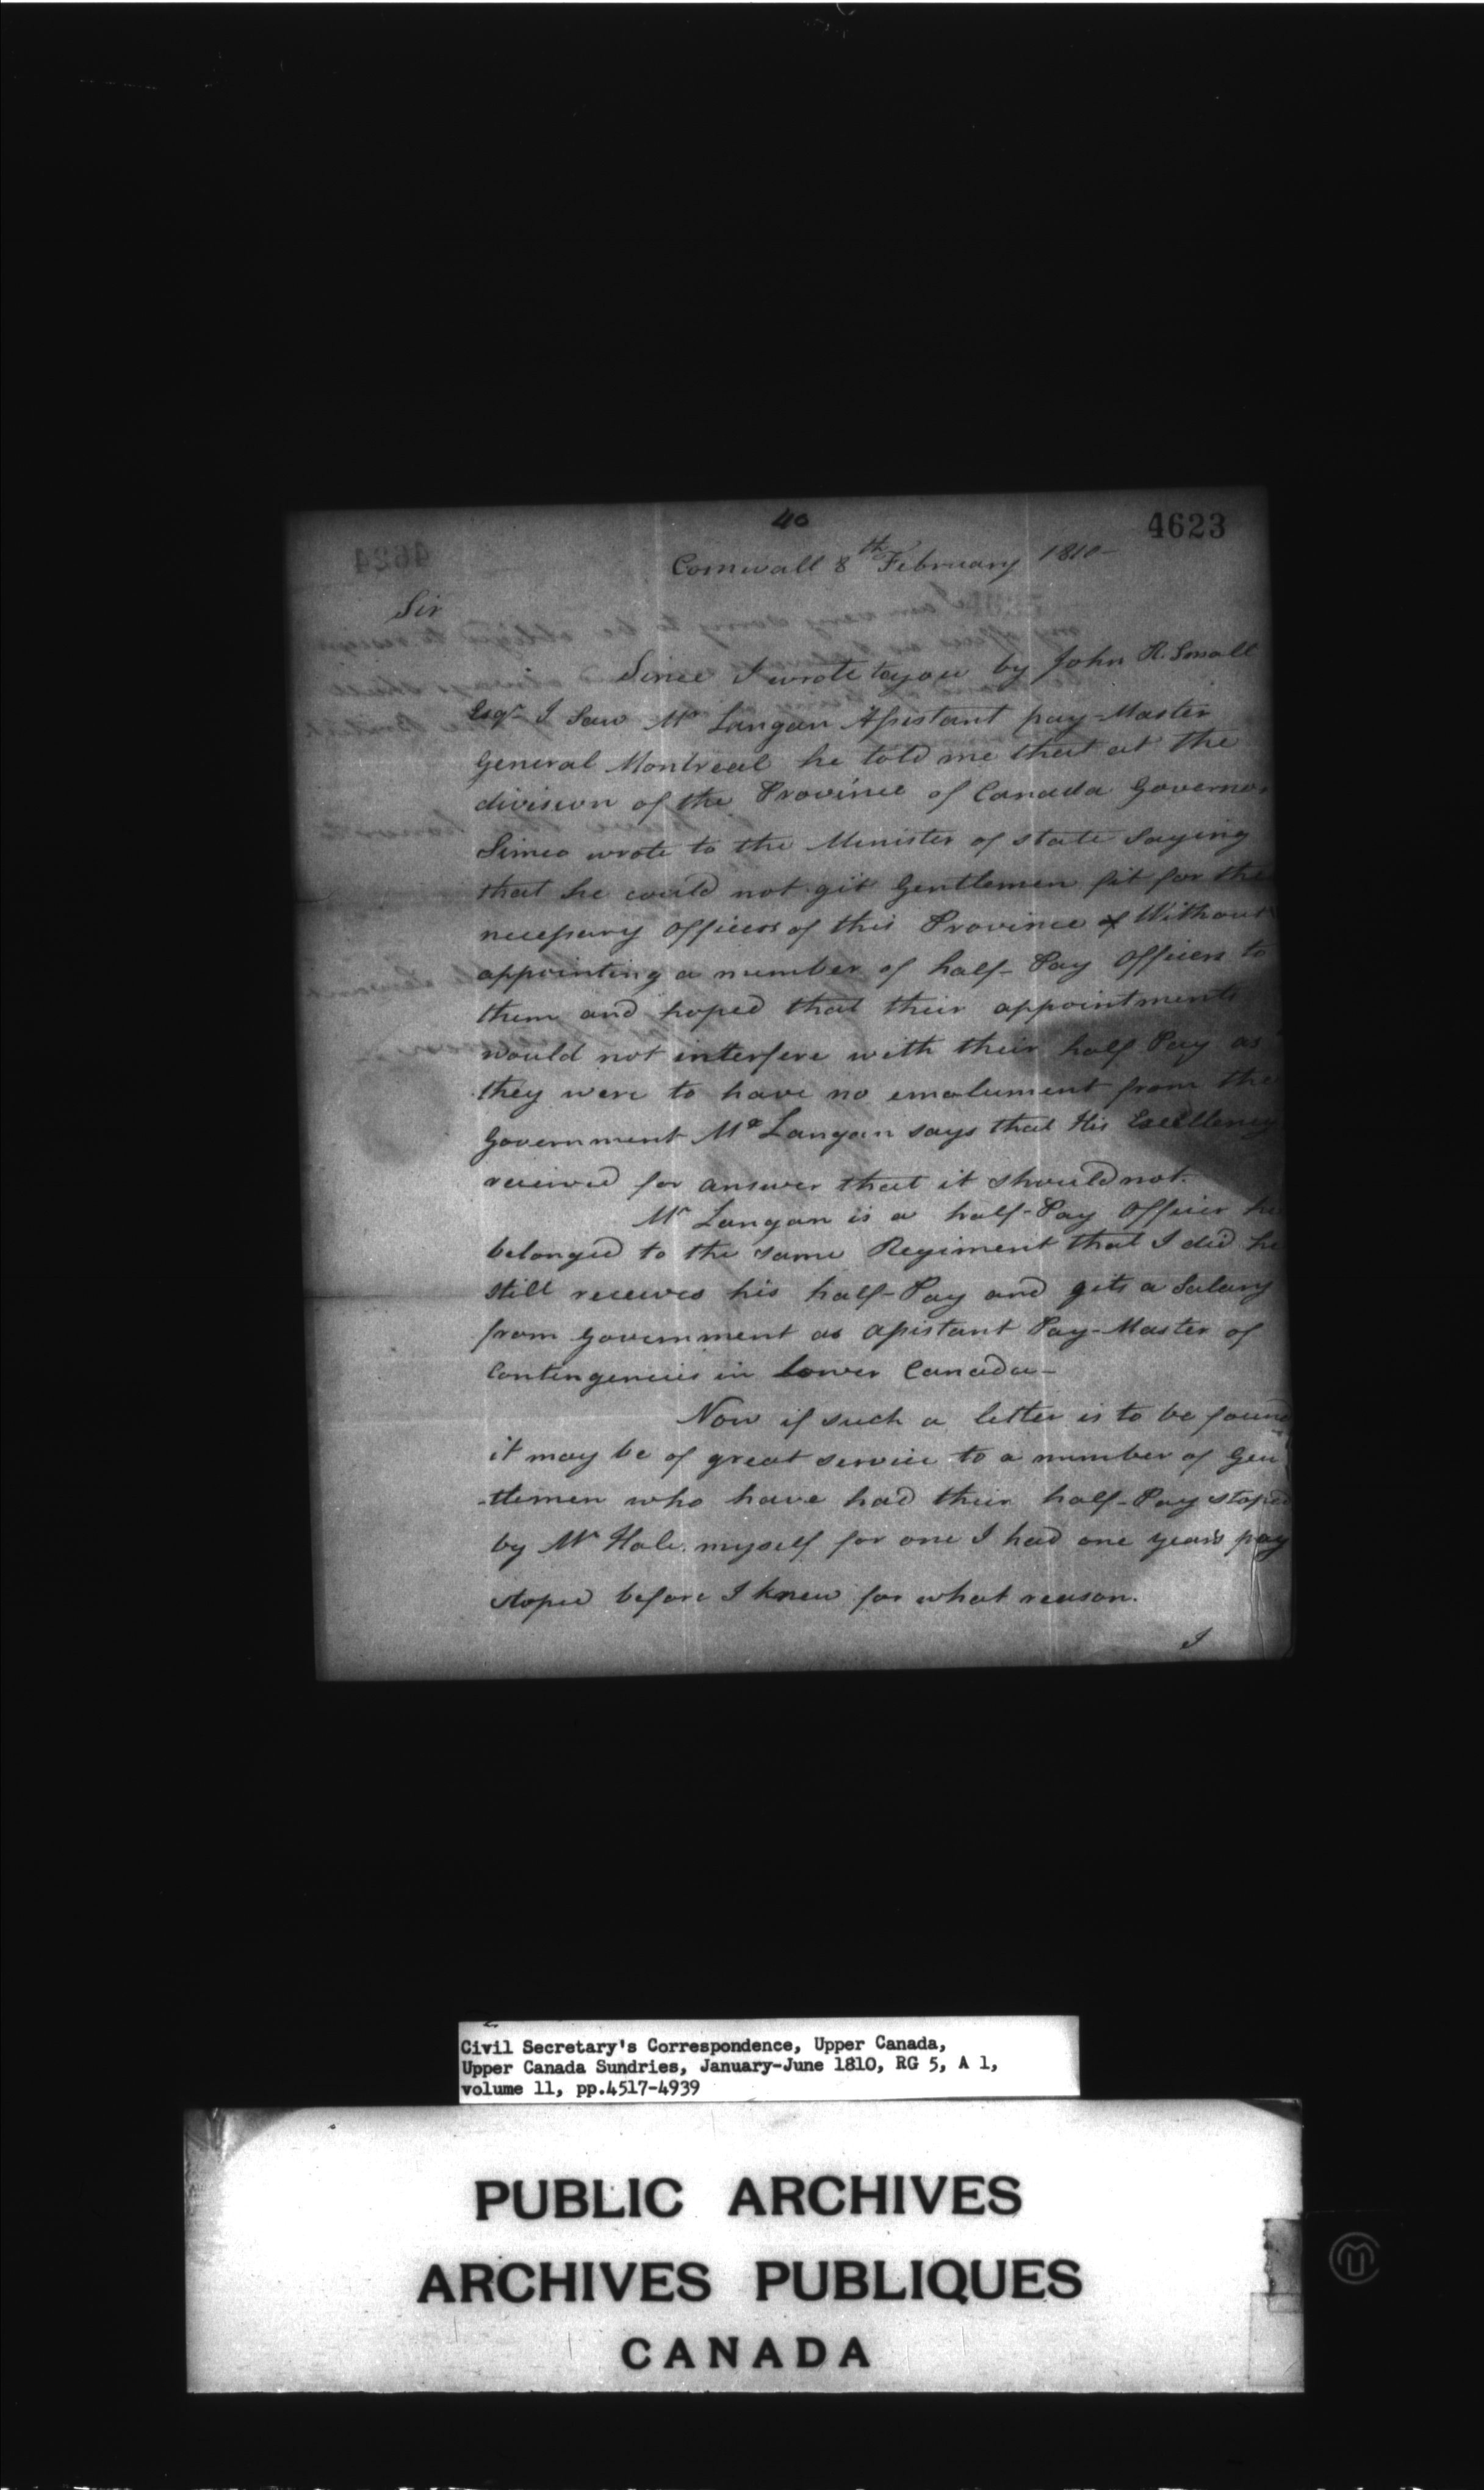 40
4623
Cornwall 8th February 1810-
Sir
Since I wrote to you by John R. Small
Esqr I Saw Mr Langan Assistant pay-Master
General Montreal he told me that at the
division of the Province of Canada Governor
Simco wrote to the Minister of state Saying
that he could not git Gentlemen fit for the
necessary Offices of this Province of Without
appointing a number of half-Pay Officers to
them and hoped that their appointments
would not interfere with their half Pay as
they were to have no emolument from the
Government Mr Langan says that His Excellency
received for answer that it should not.
Mr Langan is a half-Pay Officer he
belonged to the same Regiment that I did he
still receives his half-Pay and gits a Salary
from Government as assistant Pay-Master of
Contingencies in Lower Canada-
Now if such a letter is to be found
it may be of great service to a number of Gen
-tlemen who have had their half-Pay stoped
by Mr Hale. myself for one I had one years pay
stoped before I knew for what reason.
I
Civil Secretary's Correspondence, Upper Canada,
Upper Canada Sundries, January-June 1810, RG 5, A 1,
volume 11, pp.4517-4939
PUBLIC ARCHIVES
ARCHIVES PUBLIQUES
CANADA